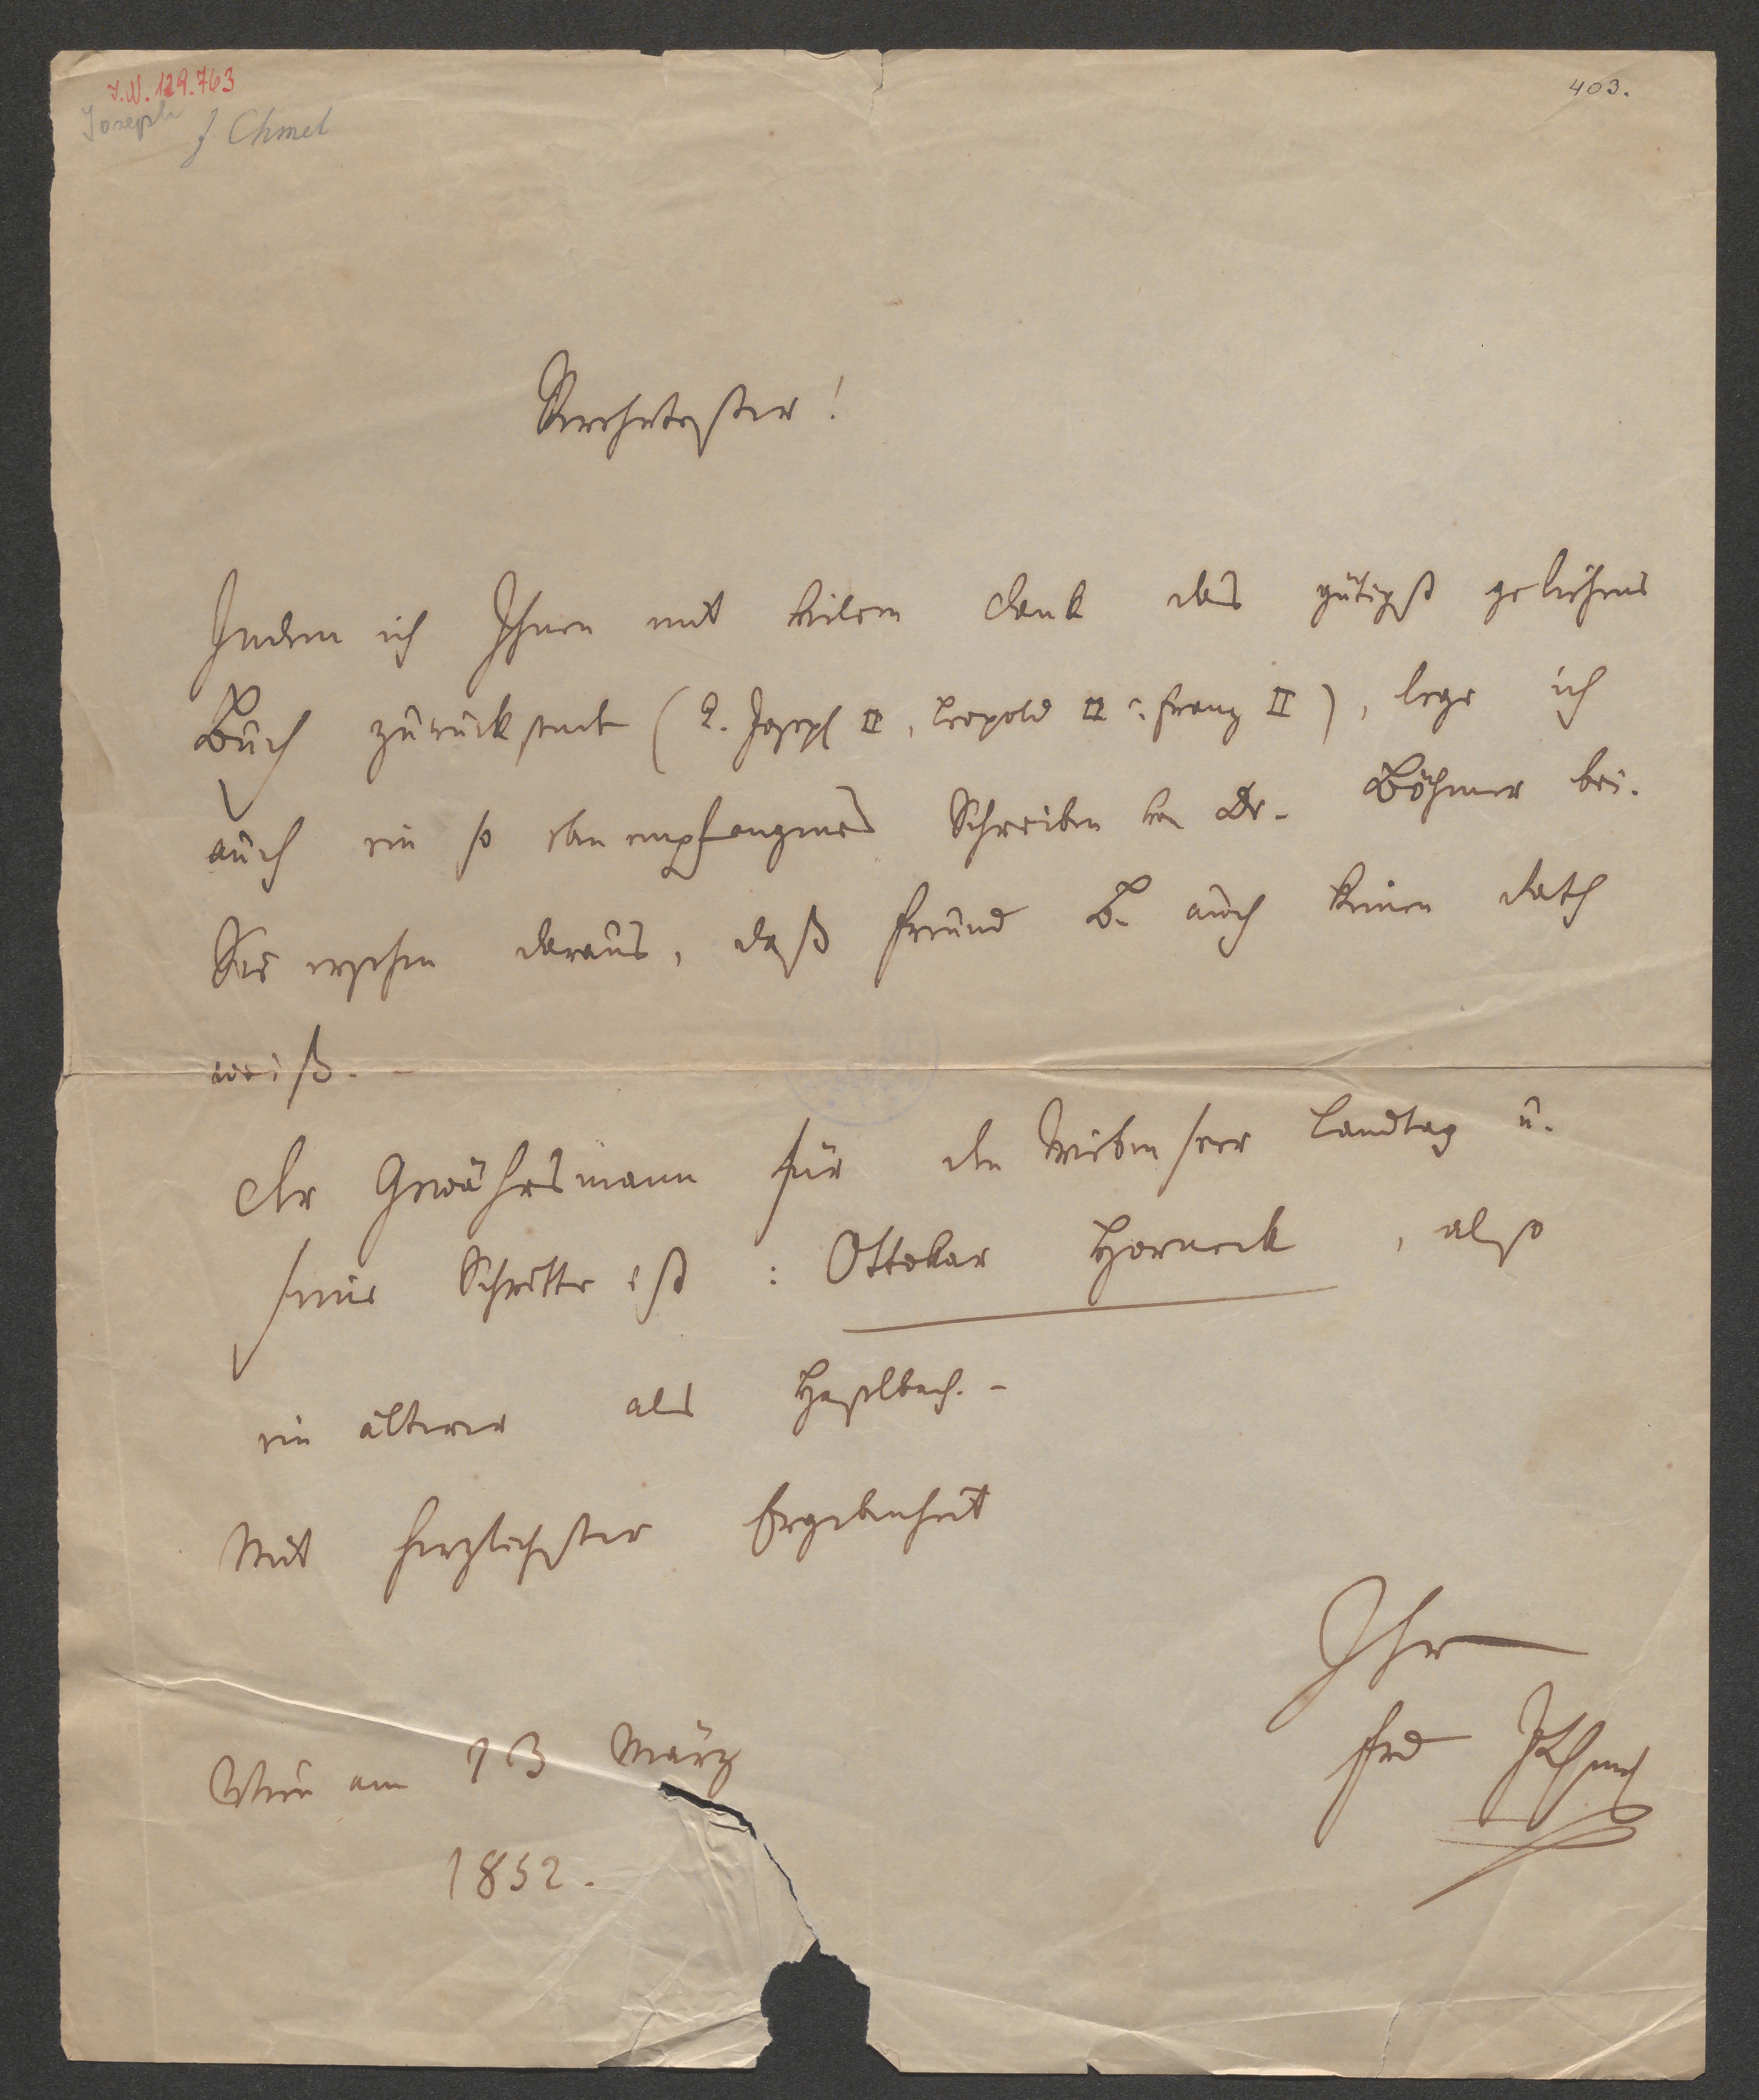 J.N. 129.763
403.
Joseph J. Chmel
Verehrtester!
Indem ich Ihnen mit vielem Dank das gütigst geliehene
Buch zurücksende (2. Joseph II, Leopold II u. Franz II), lege ich
auch ein so eben empfangenes Schreiben von Dr. Böhmer bei.
Sie ersehen daraus, daß Freund B. auch keinen Rath
weiß. –
Der Gewährsmann für den Triebenseer Landtag u.
seine Schritte ist: Ottokar Horneck, also
ein älterer als Haselbach. –
Mit herzlichster Ergebenheit
Ihr
Frd JChmel
Wien am 13 März
1852.